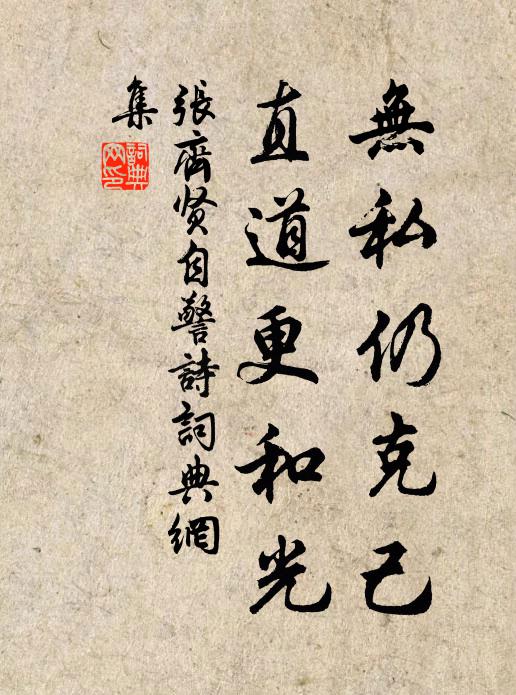 無私仍克己
直道更和光
張齊贤自警詩詞典網
集
詞典
网印